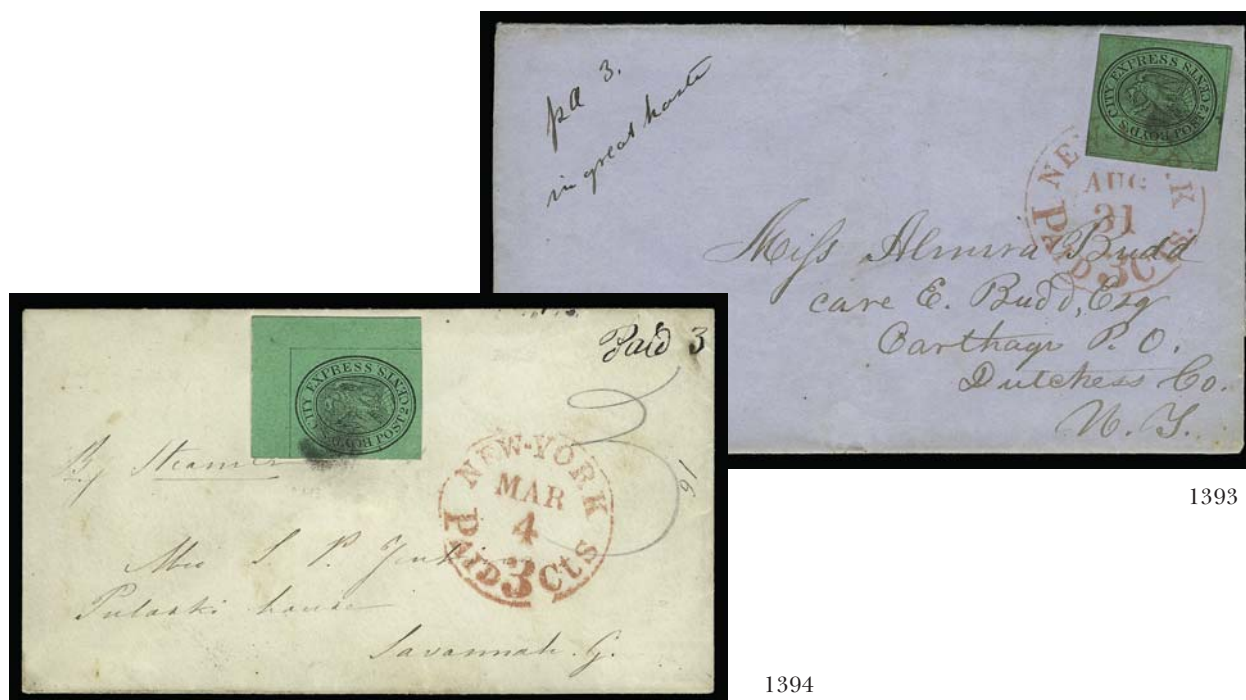 pd 3.
in great haste
BOYD'S CITY EXPRESS POST 2 CENTS
NEW YORK
AUG
31
PAID 3 Cts.
Miss Almira Budd
care E. Budd, Esq
Carthage P. O.
Dutchess Co.
N. Y.
1393
BOYD'S CITY EXPRESS POST 2 CENTS
Paid 3
3
91
By Steamer
NEW-YORK
MAR
4
PAID 3 Cts
Mrs S. P.
Pulaski house
Savannah. G.
1394